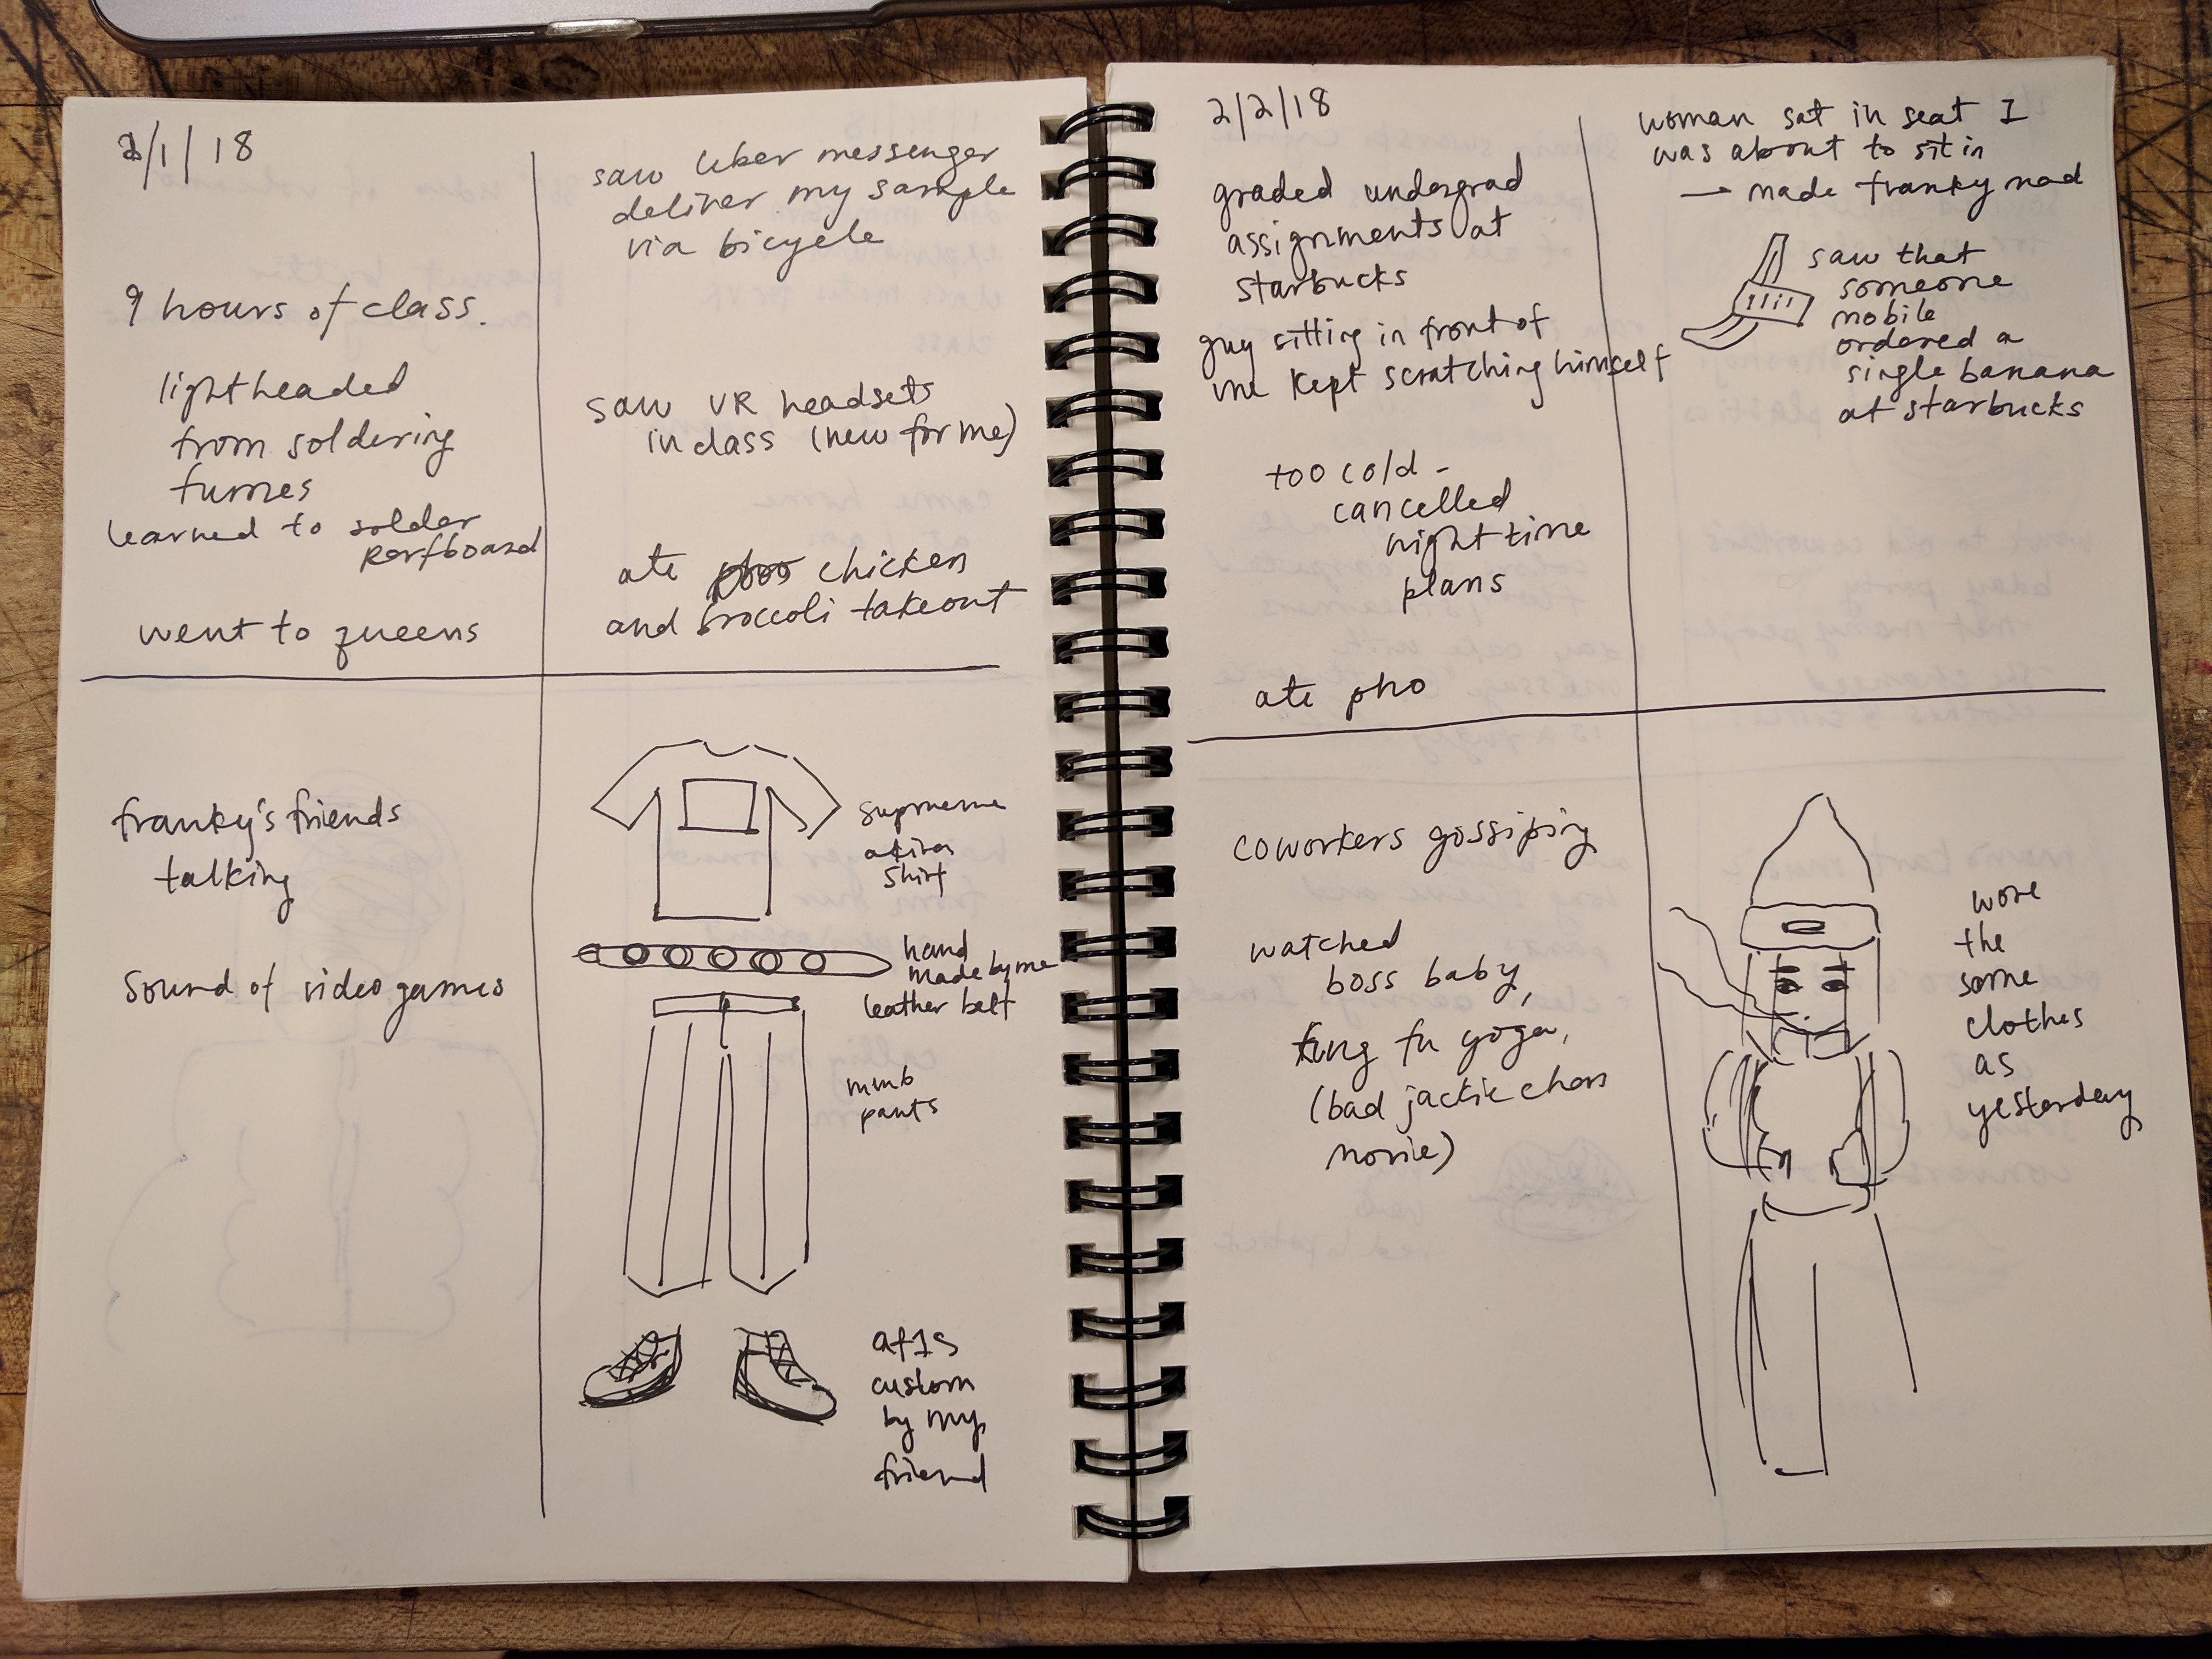 2/1/18
9 hours of class.
lightheaded
from soldering
fumes
learned to solder
perfboard
went to queens
saw Uber messenger
deliver my sample
via bicycle
saw VR headsets
in class (new for me)
ate chicken
and broccoli takeout
franky's friends
talking
sound of video games
supreme
akira
shirt
hand
made by me
leather belt
pants
af1s
custom
by my
friend
2/2/18
graded undergrad
assignments at
starbucks
guy sitting in front of
me kept scratching himself
too cold -
cancelled
night time
plans
ate pho
woman sat in seat I
was about to sit in
→ made franky mad
saw that
someone
mobile
ordered a
single banana
at starbucks
coworkers gossiping
watched
boss baby,
kung fu yoga,
(bad jackie chan
movie)
wore
the
same
clothes
as
yesterday